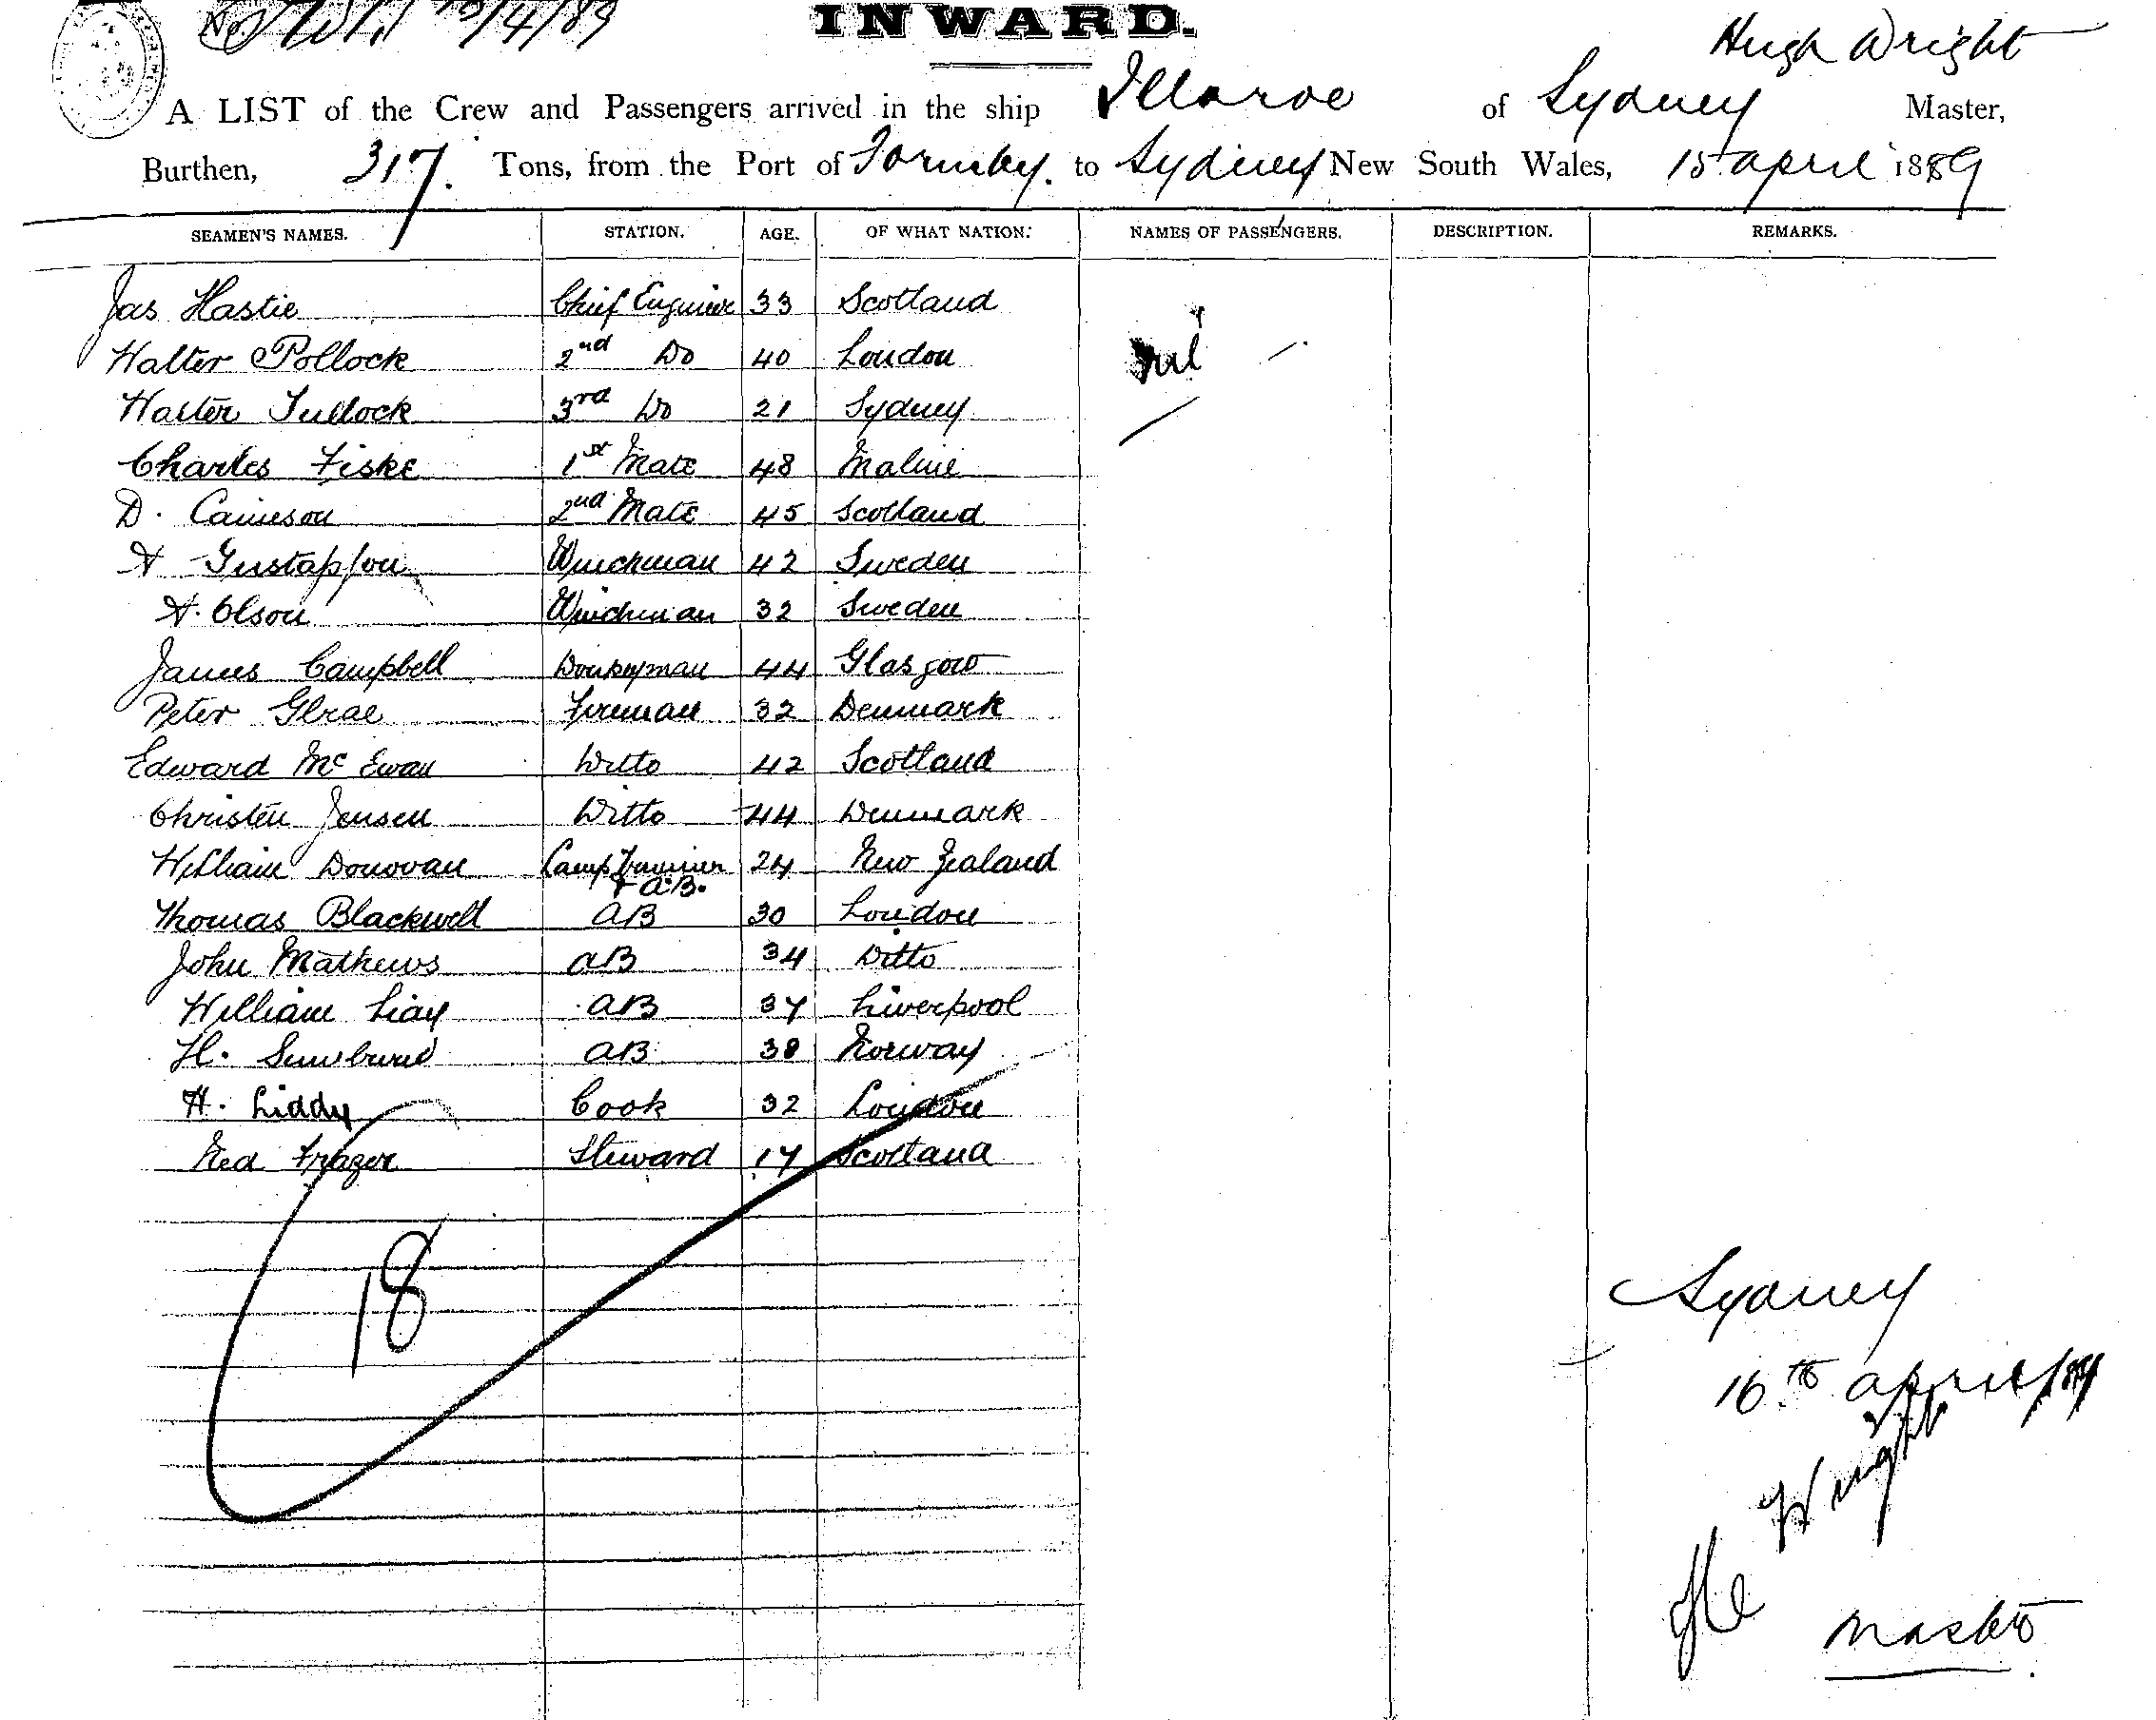 INWARD.
Hugh Wright
A LIST of the Crew and Passengers arrived in the ship Illaroo of Sydney Master,
Burthen, 317. Tons, from the Port of Formby. to Sydney New South Wales, 15 april 1889
SEAMEN'S NAMES. STATION. AGE. OF WHAT NATION. NAMES OF PASSENGERS. DESCRIPTION. REMARKS.
Jas Hastie Chief Engineer 33 Scotland
Walter Pollock 2nd Do 40 London nil
Walter Tullock 3rd Do 21 Sydney
Charles Fiske 1st Mate 48
D. Cameson 2nd Mate 45 Scotland
A Gustapson Winchman 42 Sweden
A. Olson Winchman 32 Sweden
James Campbell Donkeyman 44 Glasgow
Peter Fireman 32 Denmark
Edward McEwan Ditto 42 Scotland
Christen Jensen Ditto 44 Denmark
William Donovan Lamp Trimmer 24 New Zealand
& a.B.
Thomas Blackwell aB 30 London
John Mathews aB 34 Ditto
William aB 37 Liverpool
H. aB 38 Norway
H. Liddy Cook 32 London
Ned Frazer Steward 17 Scotland
18
Sydney
16th april/89
H Wright
Master